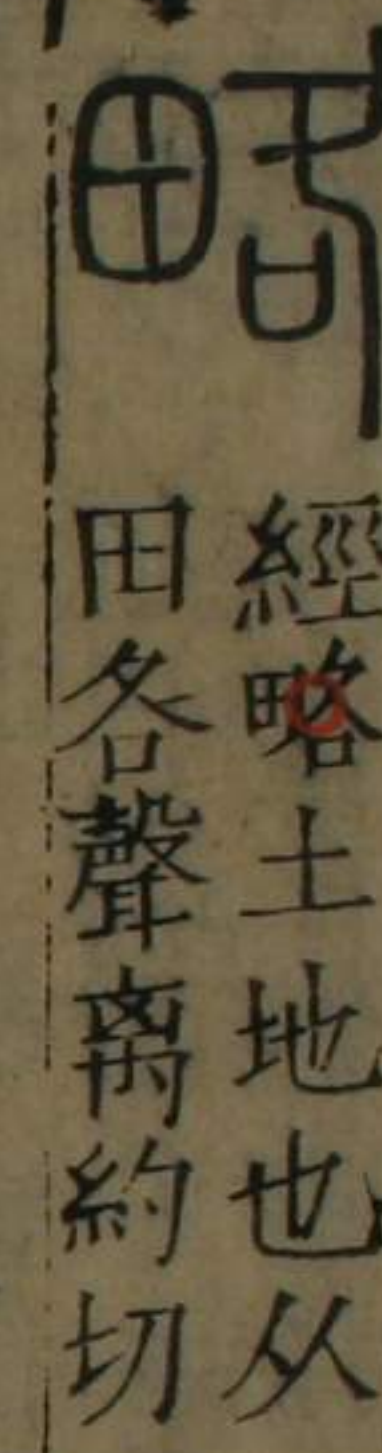 略
經略土地也从
田各聲离約切